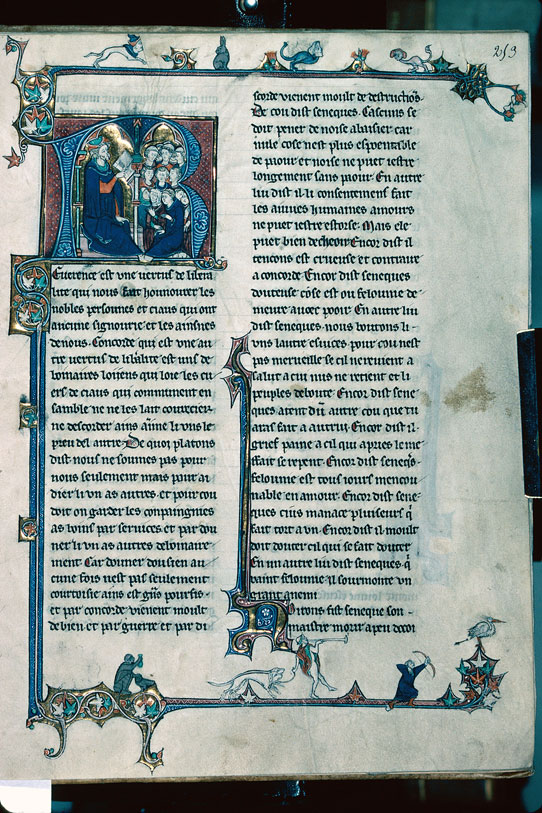 253
Reuerence est vne uertus de libera
lite qui nous fait honnourer les
nobles personnes et ciaus qui ont
aucune signourie et les ainsnes
de nous. Concorde qui est vne au
tre uertus de liberalite est uns de
loiiens qui loie les cu
ers de ciaus qui conmunent en
samble ne ne les lait
ne descorder ains li vns le
preu del autre. De quoi platons
dist nous ne sommes pas pour
nous seulement mais pour ai
dier li vn as autres et pour cou
doit on garder les conpaingnies
as boins par seruices et par dou
ner li vn as autres
ment. Car douner dou sien au
cune fois nest pas seulement
courtoisie ains est grans pourfis
et par concorde uienent moult
de bien et par guerre et par di
scorde uienent moult de destructions
De cou dist seneques. Cascuns se
doit pener de noise abaisier car
nule cose nest plus espoentable
de paour et noise ne puet iestre
longement sans paour. En autre
liu dist il li consentemens fait
les humaines amours
ne puet iestre estorse. Mais ele
puet bien decheoir Encor dist il
tencons est crueuse et contraire
a concorde. Encor dist seneques
douteuse cose est ou felounie de
meure auoec pooir. En autre liu
dist seneques. nous
vns lautre pour cou nest
pas merueille se cil ne reuient a
salut a cui nus ne retient et li
peules deboute. Encor dist sene
ques atent dun autre cou que tu
auras fait a autrui. Encor dist il
grief paine a cil qui apries le me
ffait se repent. Encor dist seneques
felounie est tous iours
nable en amour. Encor dist sene
ques cius manace pluiseurs qui
fait tort a vn. Encor dist il moult
doit douter cil qui se fait douter
En un autre liu dist seneques qui
vaint felounie il sourmonte vn
grant anemi
Noirons fist seneque son
maistre morir a peu docoi